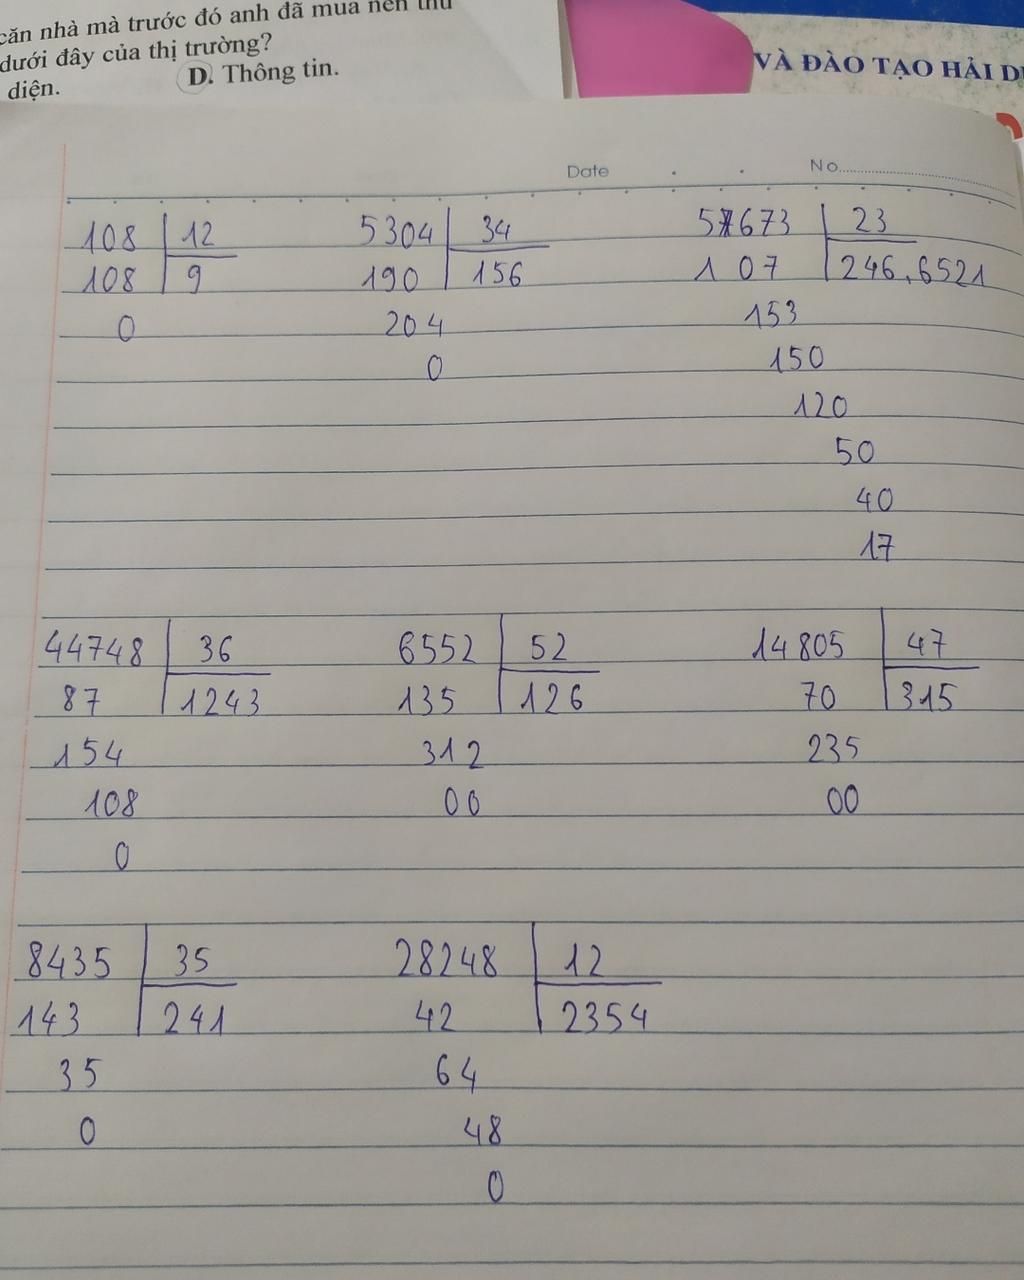 căn nhà mà trước đó anh đã mua nên thu
dưới đây của thị trường?
diện. D. Thông tin.
VÀ ĐÀO TẠO HẢI
Date No
108 12 5304 34 5673 23
108 9 190 156 107 246,6521
0 204 153
0 150
120
50
40
17
44748 36 6552 52 14805 47
87 1243 135 126 70 315
154 312 235
108 00 00
0
8435 35 28248 12
143 241 42 2354
35 64
0 48
0